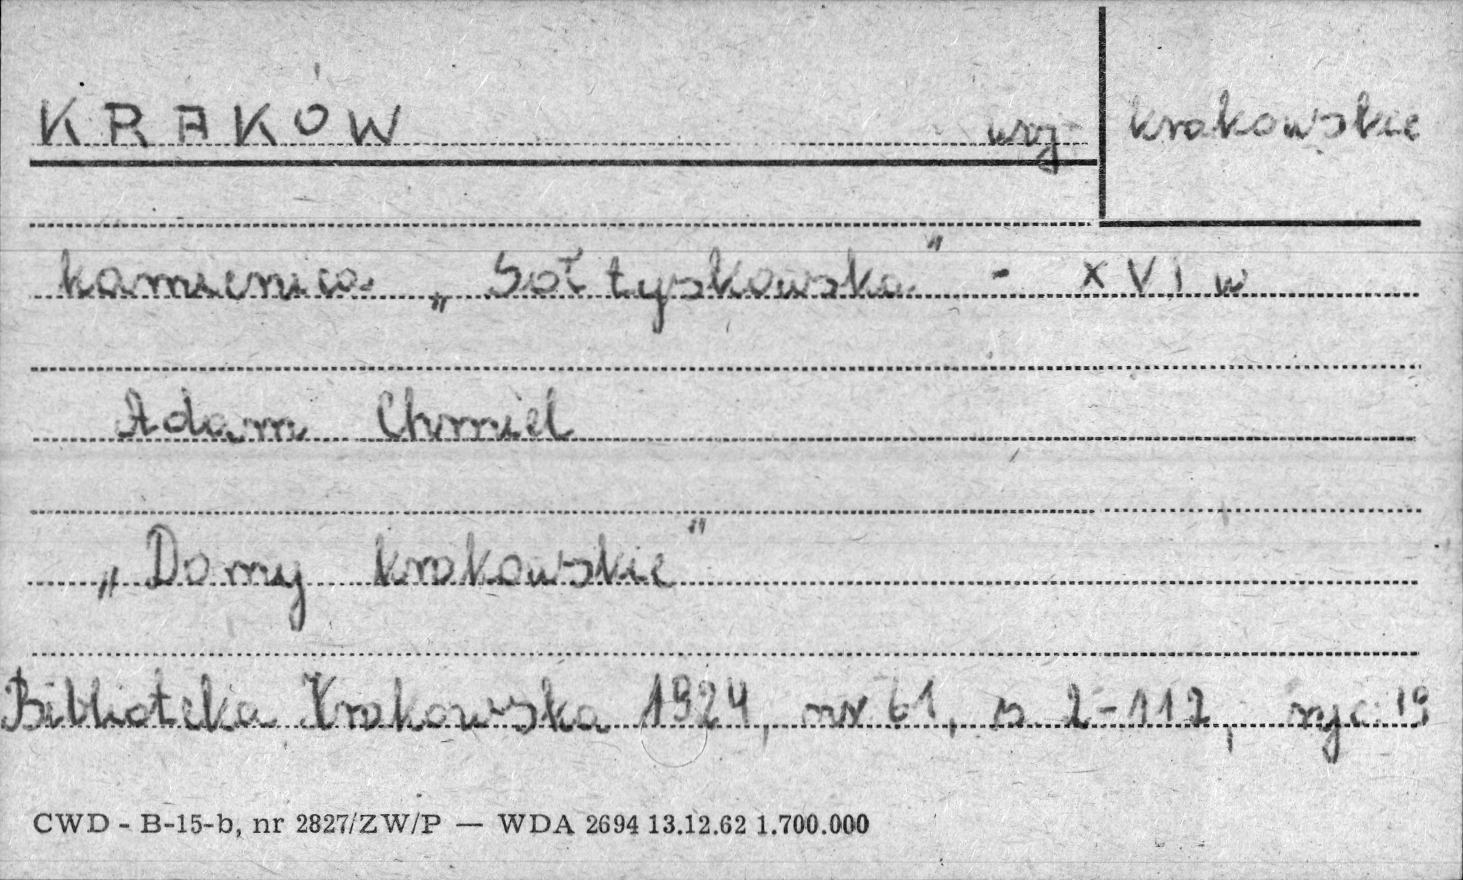 KRAKÓW woj krakowskie
kamienica „Sołtyskowska" - XVI w
Adam Chmiel
„Domy krakowskie"
Biblioteka Krakowska 1924, nr 61, s 2-112, ryc 19
CWD - B-15-b, nr 2827/ZW/P — WDA 2694 13.12.62 1.700.000